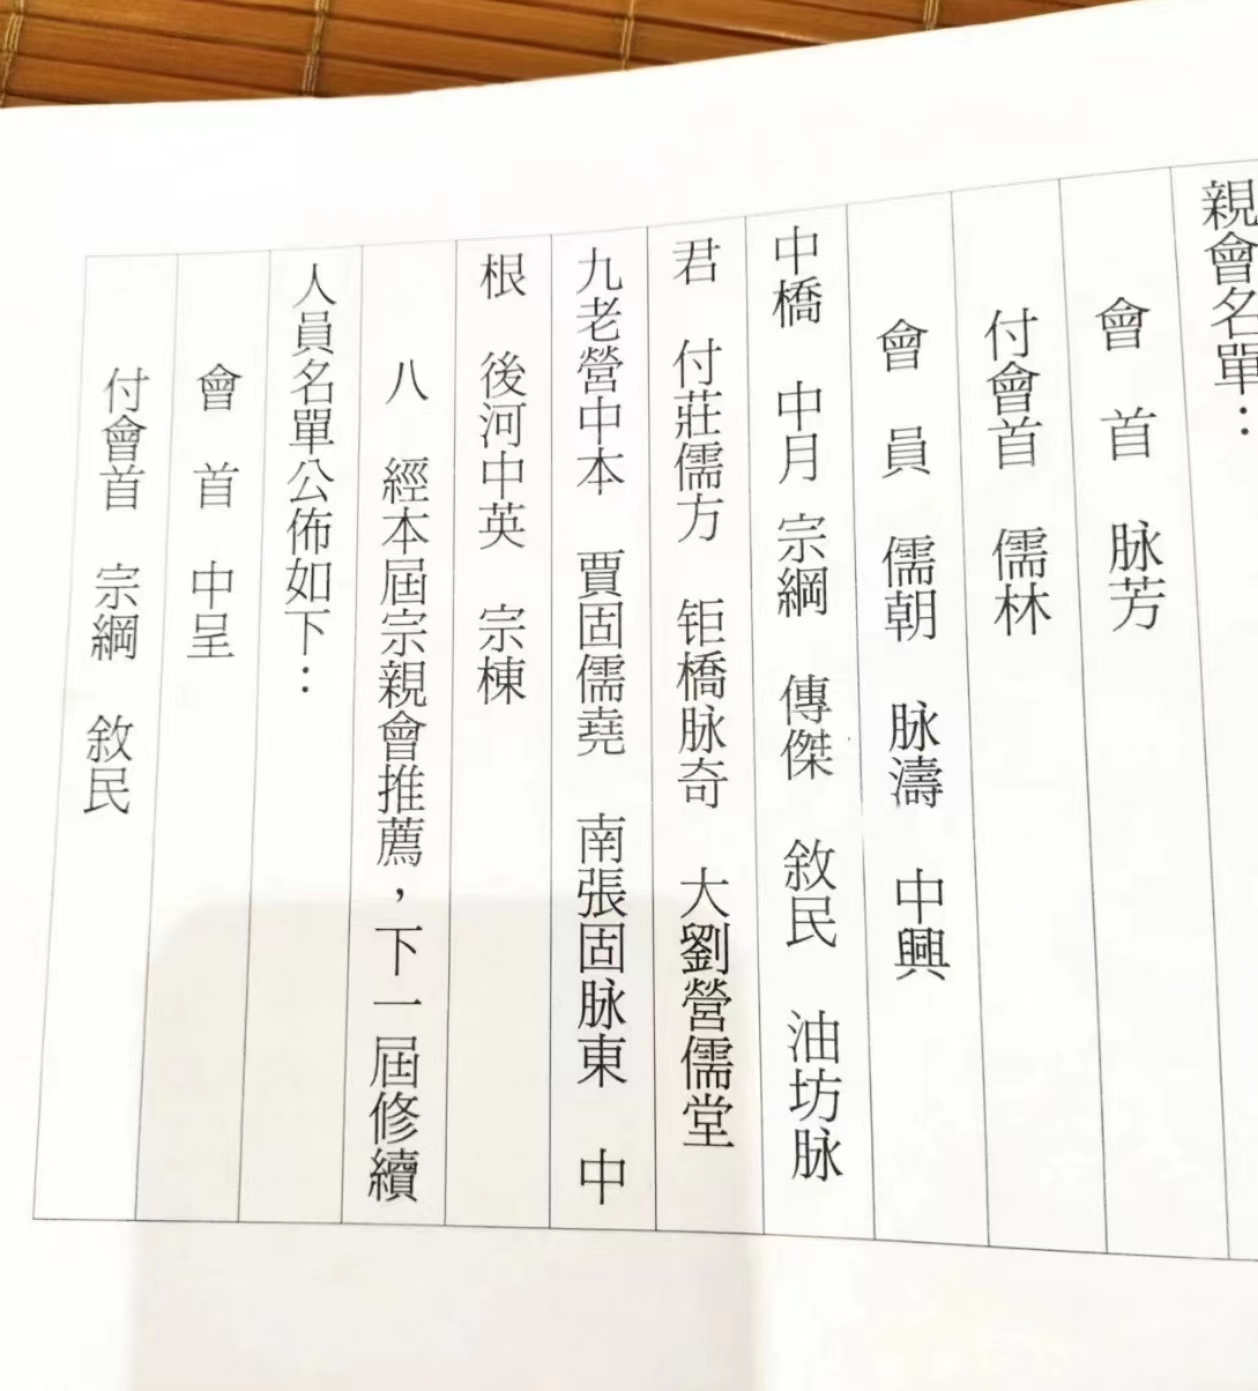 親會名單：
會 首 脉芳
付會首 儒林
會 員 儒朝 脉濤 中興
中橋 中月 宗綱 傳傑 敘民 油坊脉
君 付莊儒方 钜橋脉奇 大劉營儒堂
九老營中本 賈固儒堯 南張固脉東 中
根 後河中英 宗棟
八 經本屆宗親會推薦，下一屆修續
人員名單公佈如下：
會 首 中呈
付會首 宗綱 敘民